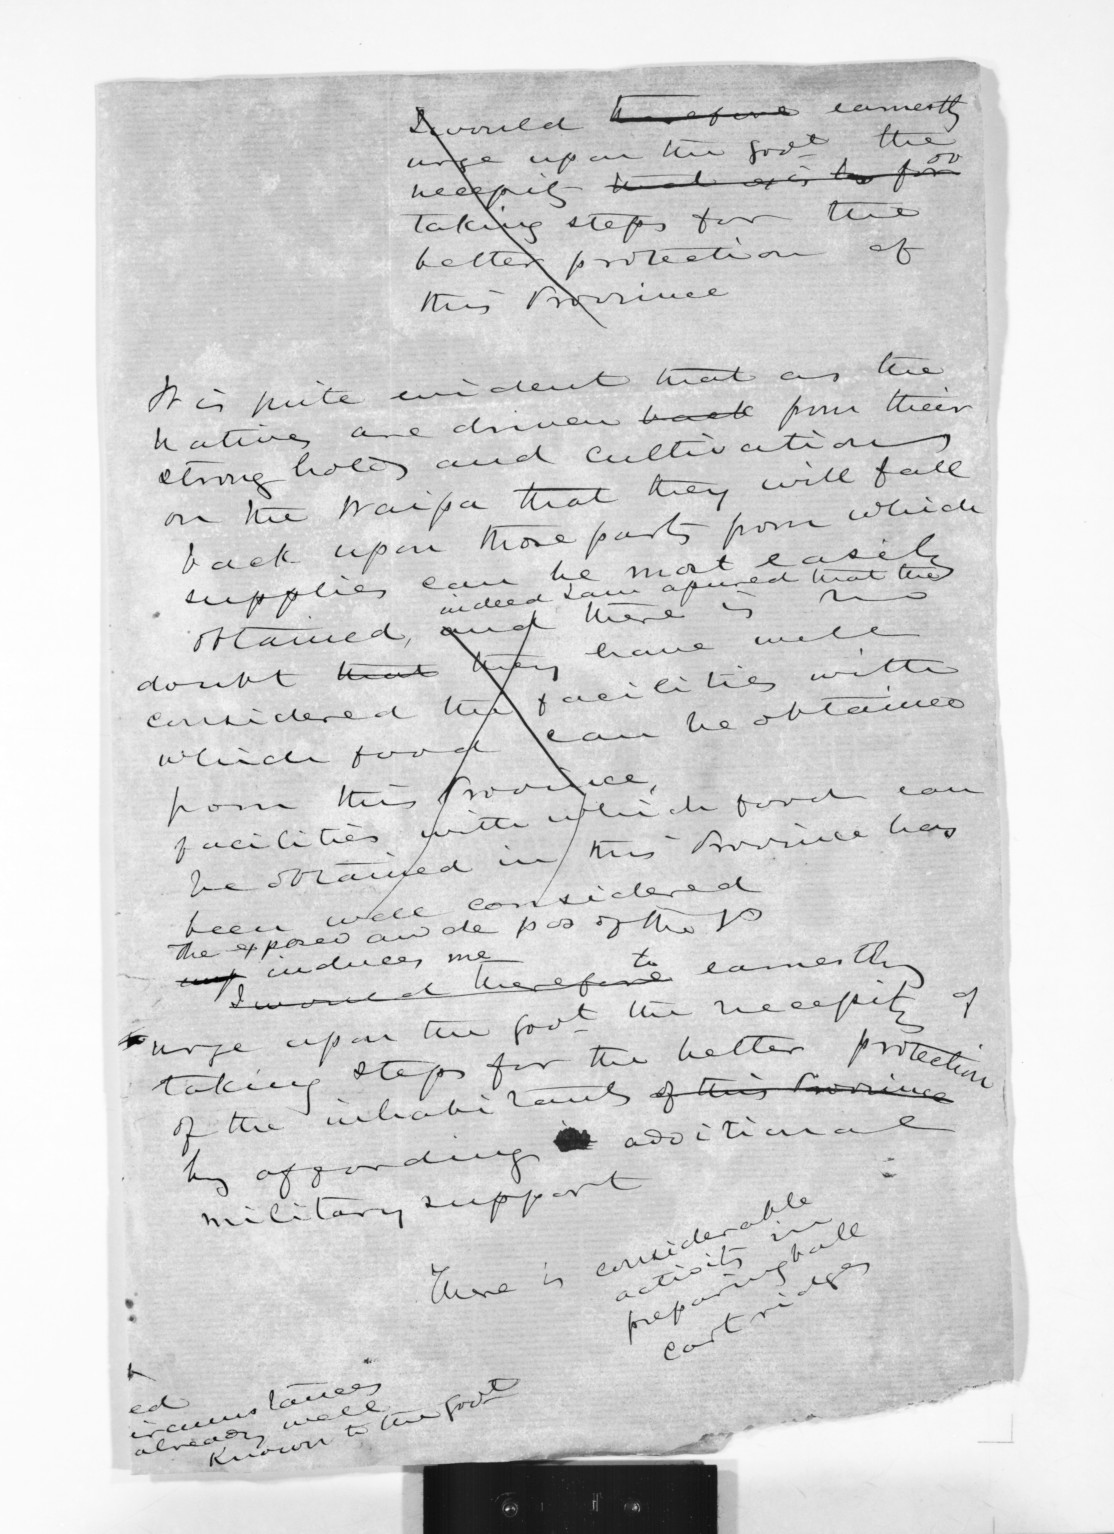 I would therefore earnestly
urge upon the Govt the
necessity that exists for
taking steps for the
better protection of
this Province
It is quite evident that as the
Natives are driven back from their
strong holds and cultivations
on the Waipa that they will fall
back upon those parts from which
supplies can be most easily
indeed I am assured that the
obtained, and there is no
doubt that they have well
considered the facilities with
which food can be obtained
from this Province,
facilities with which food can
be obtained in this Province has
been well considered
The exposed and de pos of the
induces me to
I would therefore earnestly
urge upon the Govt the necessity of
taking steps for the better protection
of the inhabitants of this Province
by affording additional
military support
There is considerable
activity in
preparing ball
cartridges
ed
ircumstances
already well
known to the Govt